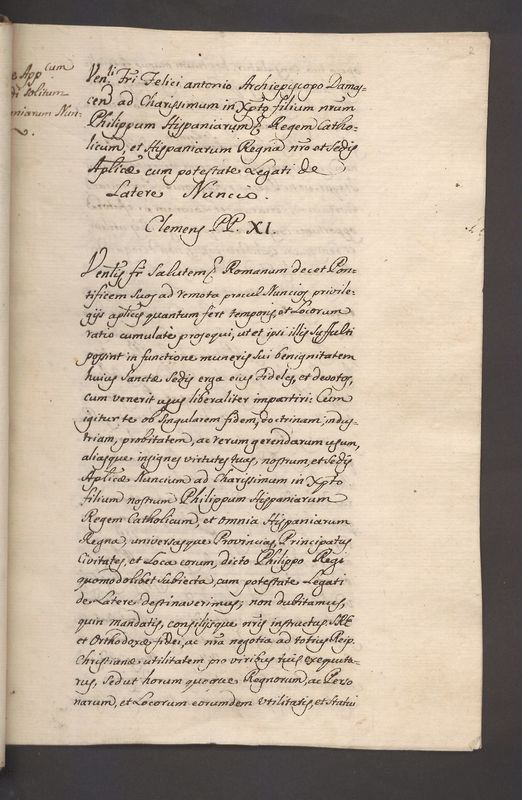 2
cum
e App
di solitum
niarum Nun-
Venli Fri Felici antonio Archiepiscopo Damas-
ceno ad Charissimum in Xpto filium nrum
Philippum Hispaniarum Regem Catho-
licum, et Hispaniarum Regna nro et sedis
Aplicæ cum potestate Legati de
Latere Nuncio.
Clemens PP. XI.
Venlis fr Salutem Romanum decet Pon-
tificem Suos ad remota procul Nuncios privile-
gijs aplicis quantum fert temporis, et Locorum
ratio cumulate prosequi, ut et ipsi illis suffulti
possint in functione muneris sui benignitatem
huius Sanctæ Sedis erga eius Fideles, et devotos,
cum venerit usus liberaliter impartiri: Cum
igitur te ob singularem fidem, doctrinam, indus-
triam, probitatem, ac rerum gerendarum usum,
aliasque insignes virtutes tuas, nostrum, et sedis
Aplicæ Nuncium ad Charissimum in Xpto
filium nostrum Philippum Hispaniarum
Regem Catholicum, et omnia Hispaniarum
Regna, universasque Provincias, Principatus
Civitates, et Loca eorum, dicto Philippo Regi
quomodolibet subiecta, cum potestate Legati
de Latere destinaverimus; non dubitamus,
quin mandatis, consilijsque nris instructus SRE
et Orthodoxæ fidei, ac nra negotia ad totius Reip.
Christianæ utilitatem pro viribus tuis exequutu-
rus, Sed ut horum quoque Regnorum, ac Perso
narum, et Locorum eorumdem utilitatis, et Statui